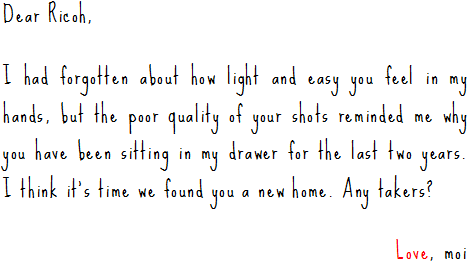 Dear Ricoh,
I had forgotten about how light and easy you feel in my
hands, but the poor quality of your shots reminded me why
you have been sitting in my drawer for the last two years.
I think it's time we found you a new home. Any takers?
Love, moi